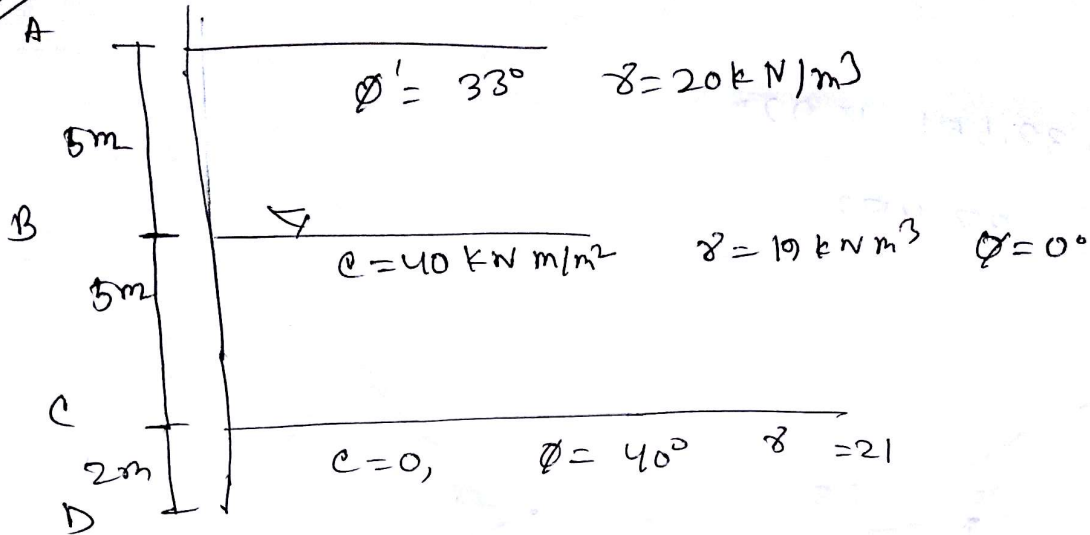 A
ø' = 33° γ = 20 k N/m3
5m
B
c = 40 KN m/m2 γ = 19 kN m3 ø = 0°
5m
C
c = 0, ø = 40° γ = 21
2m
D